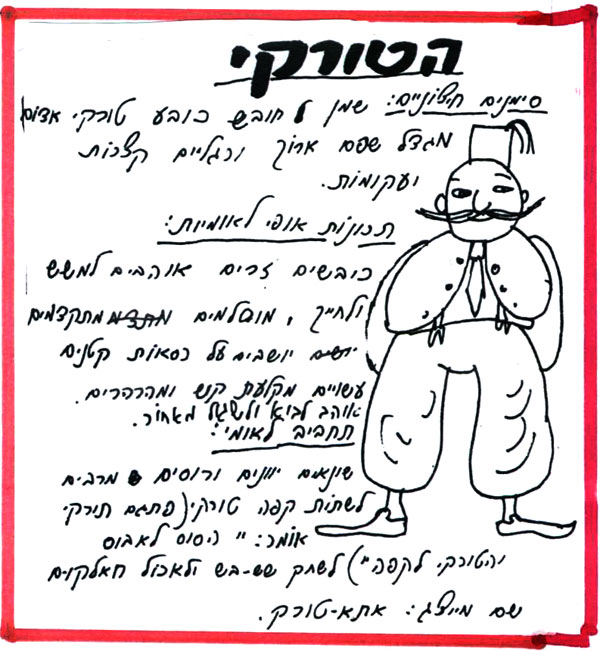 הטורקי
סימנים חיצוניים: שמן חובש כובע טורקי אדום
מגדל שפם ארוך ורגליים קצרות
ועקומות.
תכונות אופי לאומיות:
כובשים זרים אוהבים למשש
ולחייך, מוסלמים מתקדמים
יושבים על כסאות קטנים
עשויים מקלעת קש ומהרהרים.
אוהב לביא ולשגל מאחור.
תחביב לאומי:
שונאים יוונים ורוסים מרבים
לשתות קפה טורקי (פתגם תורקי
אומר: "הסוס לאבוס
והטורקי לקפה") לשחק שש-בש ולאכול חאלקום
שם מייצג: אתא-טורק.